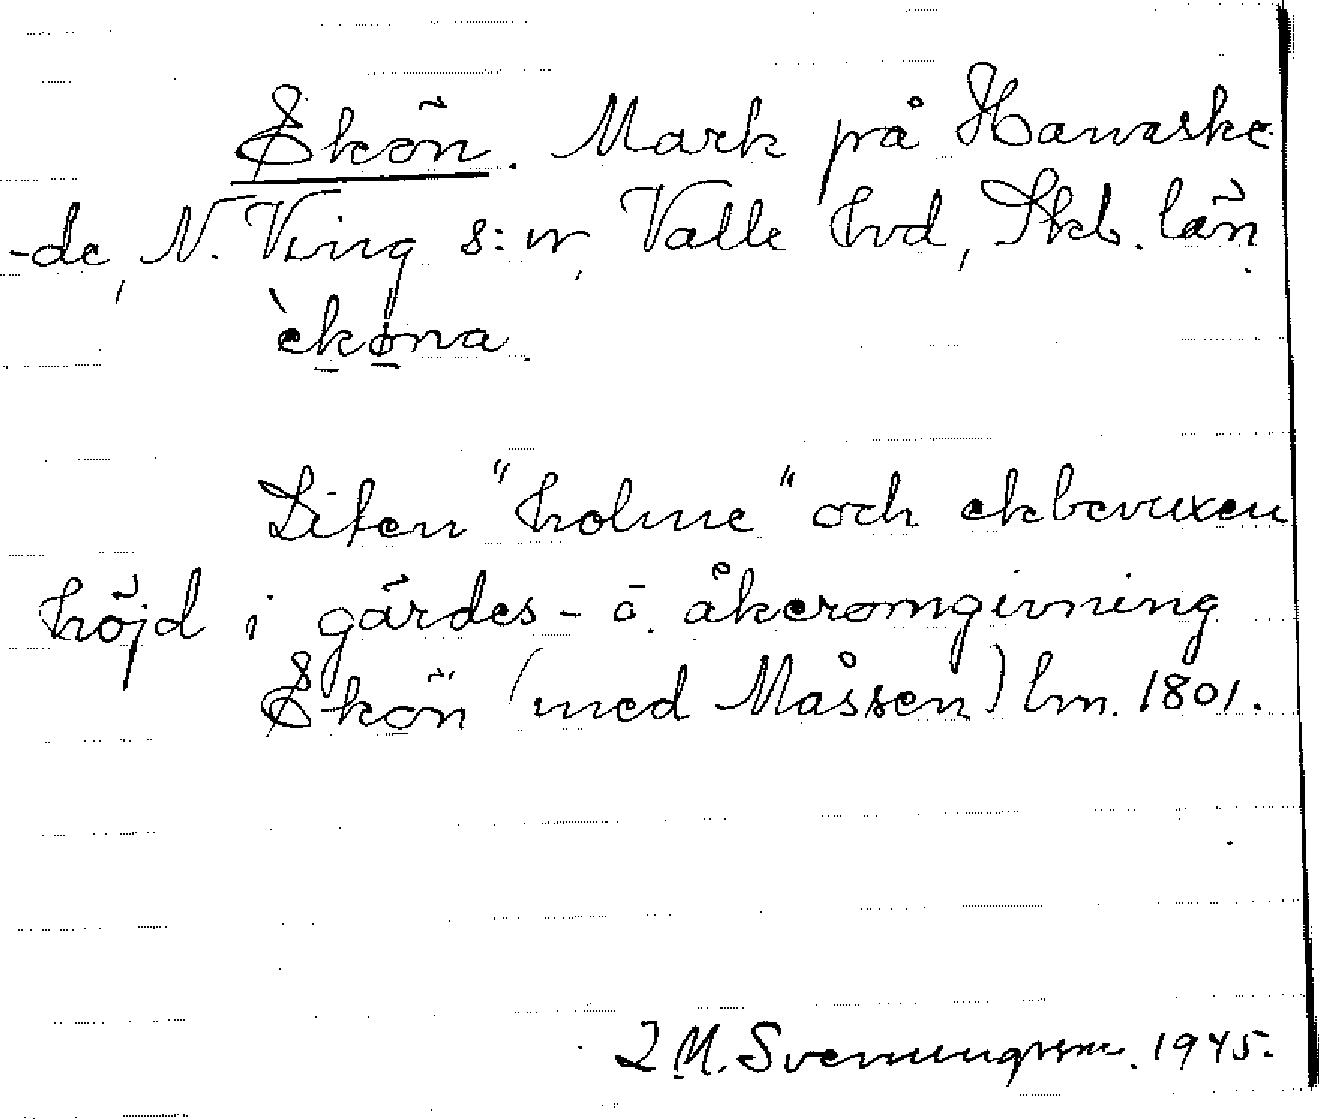 Ekön. Mark på Hawaske
-de, N. Ving s:n, Valle hd, Skb. län
èkøna.
Liten "holme" och ekbevuxen
höjd i gärdes- o. åkeromgivning
Ekön (med Måssen) lm. 1801.
Svenungsson. 1945.